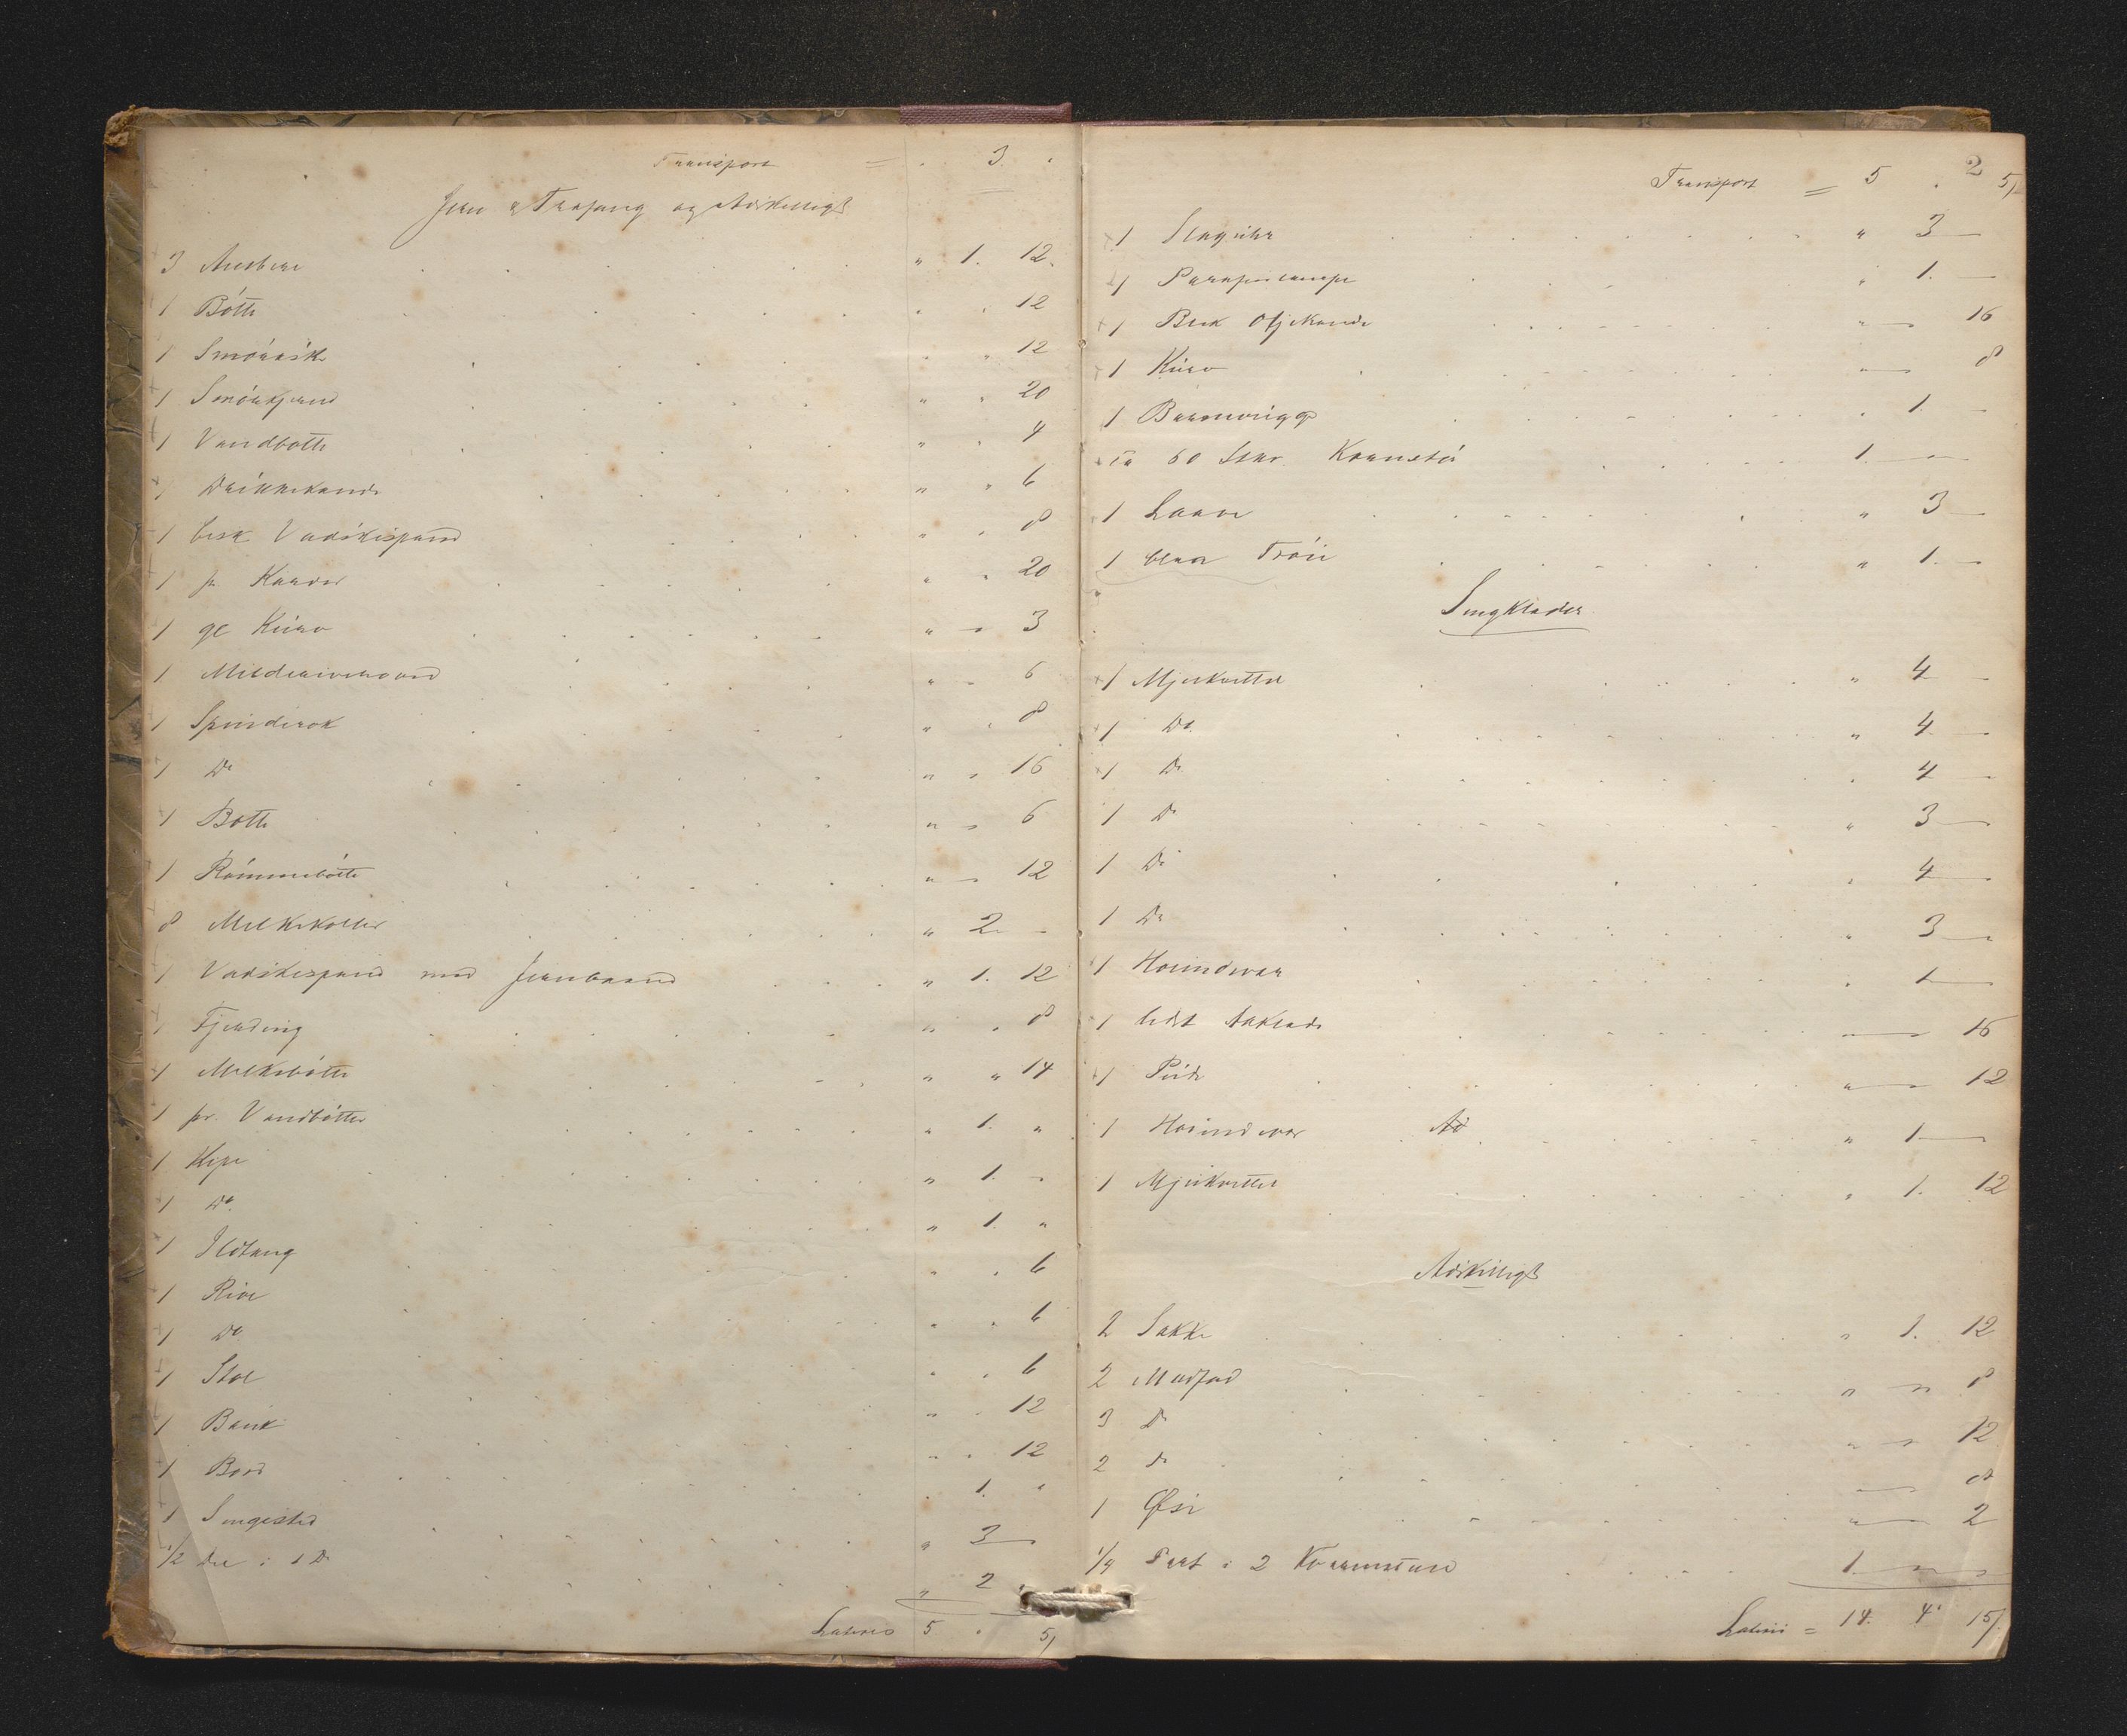 Transport = " 3. "
Jern & Træfang og Adskilligt
3 Ausberer " 1. 12.
1 Bøtte " " 12
1 Smørask " " 12
1 Smørspand " " 20
1 Vandbøtte " " 4
1 Drikkekande " " 6
1 besk. Vadskespand " " 8
1 pr Karder " " 20
1 gl Kurv " " 3
1 " " 6
1 Spinderok " " 8
1 Do " " 16
1 Bøtte " " 6
1 Rømmebøtte " " 12
8 Melkekoller " 2. "
1 Vadskespand med Jernbaand " 1. 12
1 Fjerding " " 8
1 Melkebøtte " " 14
1 pr. Vandbøtter " 1. "
1 Kipe " 1. "
1 Do. " 1. "
1 Ildtang " " 6
1 Rive " " 6
1 Do " " 6
1 Stol " " 12
1 Bænk " " 12
1 Bord " 1. "
1 Sengested " 3 —
1/2 Del i 1 Do " 2 "
Lateris 5 " 5/
2
Transport = 5 . 5/
1 Slaguhr " 3 —
1 Parafinlampe " 1. —
1 Blik Oljekande " — 16
1 Kurv " — 8
1 Barnevugge " 1. —
ca 60 Stkr. Kornstør 1. " —
1 Laave " 3 —
1 blaa Trøie " 1. —
Sengklæder
1 Mjukvittel " 4 —
1 Do. " 4 —
1 Do " 4 —
1 Do " 3 —
1 Do " 4 —
1 Do " 3 —
1 Hoiendvar " 1 —
1 lidet Aaklæde — 16
1 Pude " — 12
1 Hoiendvar " 1 —
1 Mjukvittel " 1. 12
Adskilligt
2 Sække " 1. 12
2 Madfad " " 8
3 Do " " 12
2 do — 8
1 Øse " — 2
1/4 Part i 2 Kværnstene 1. " "
Lateris = 14. 4. 15/.